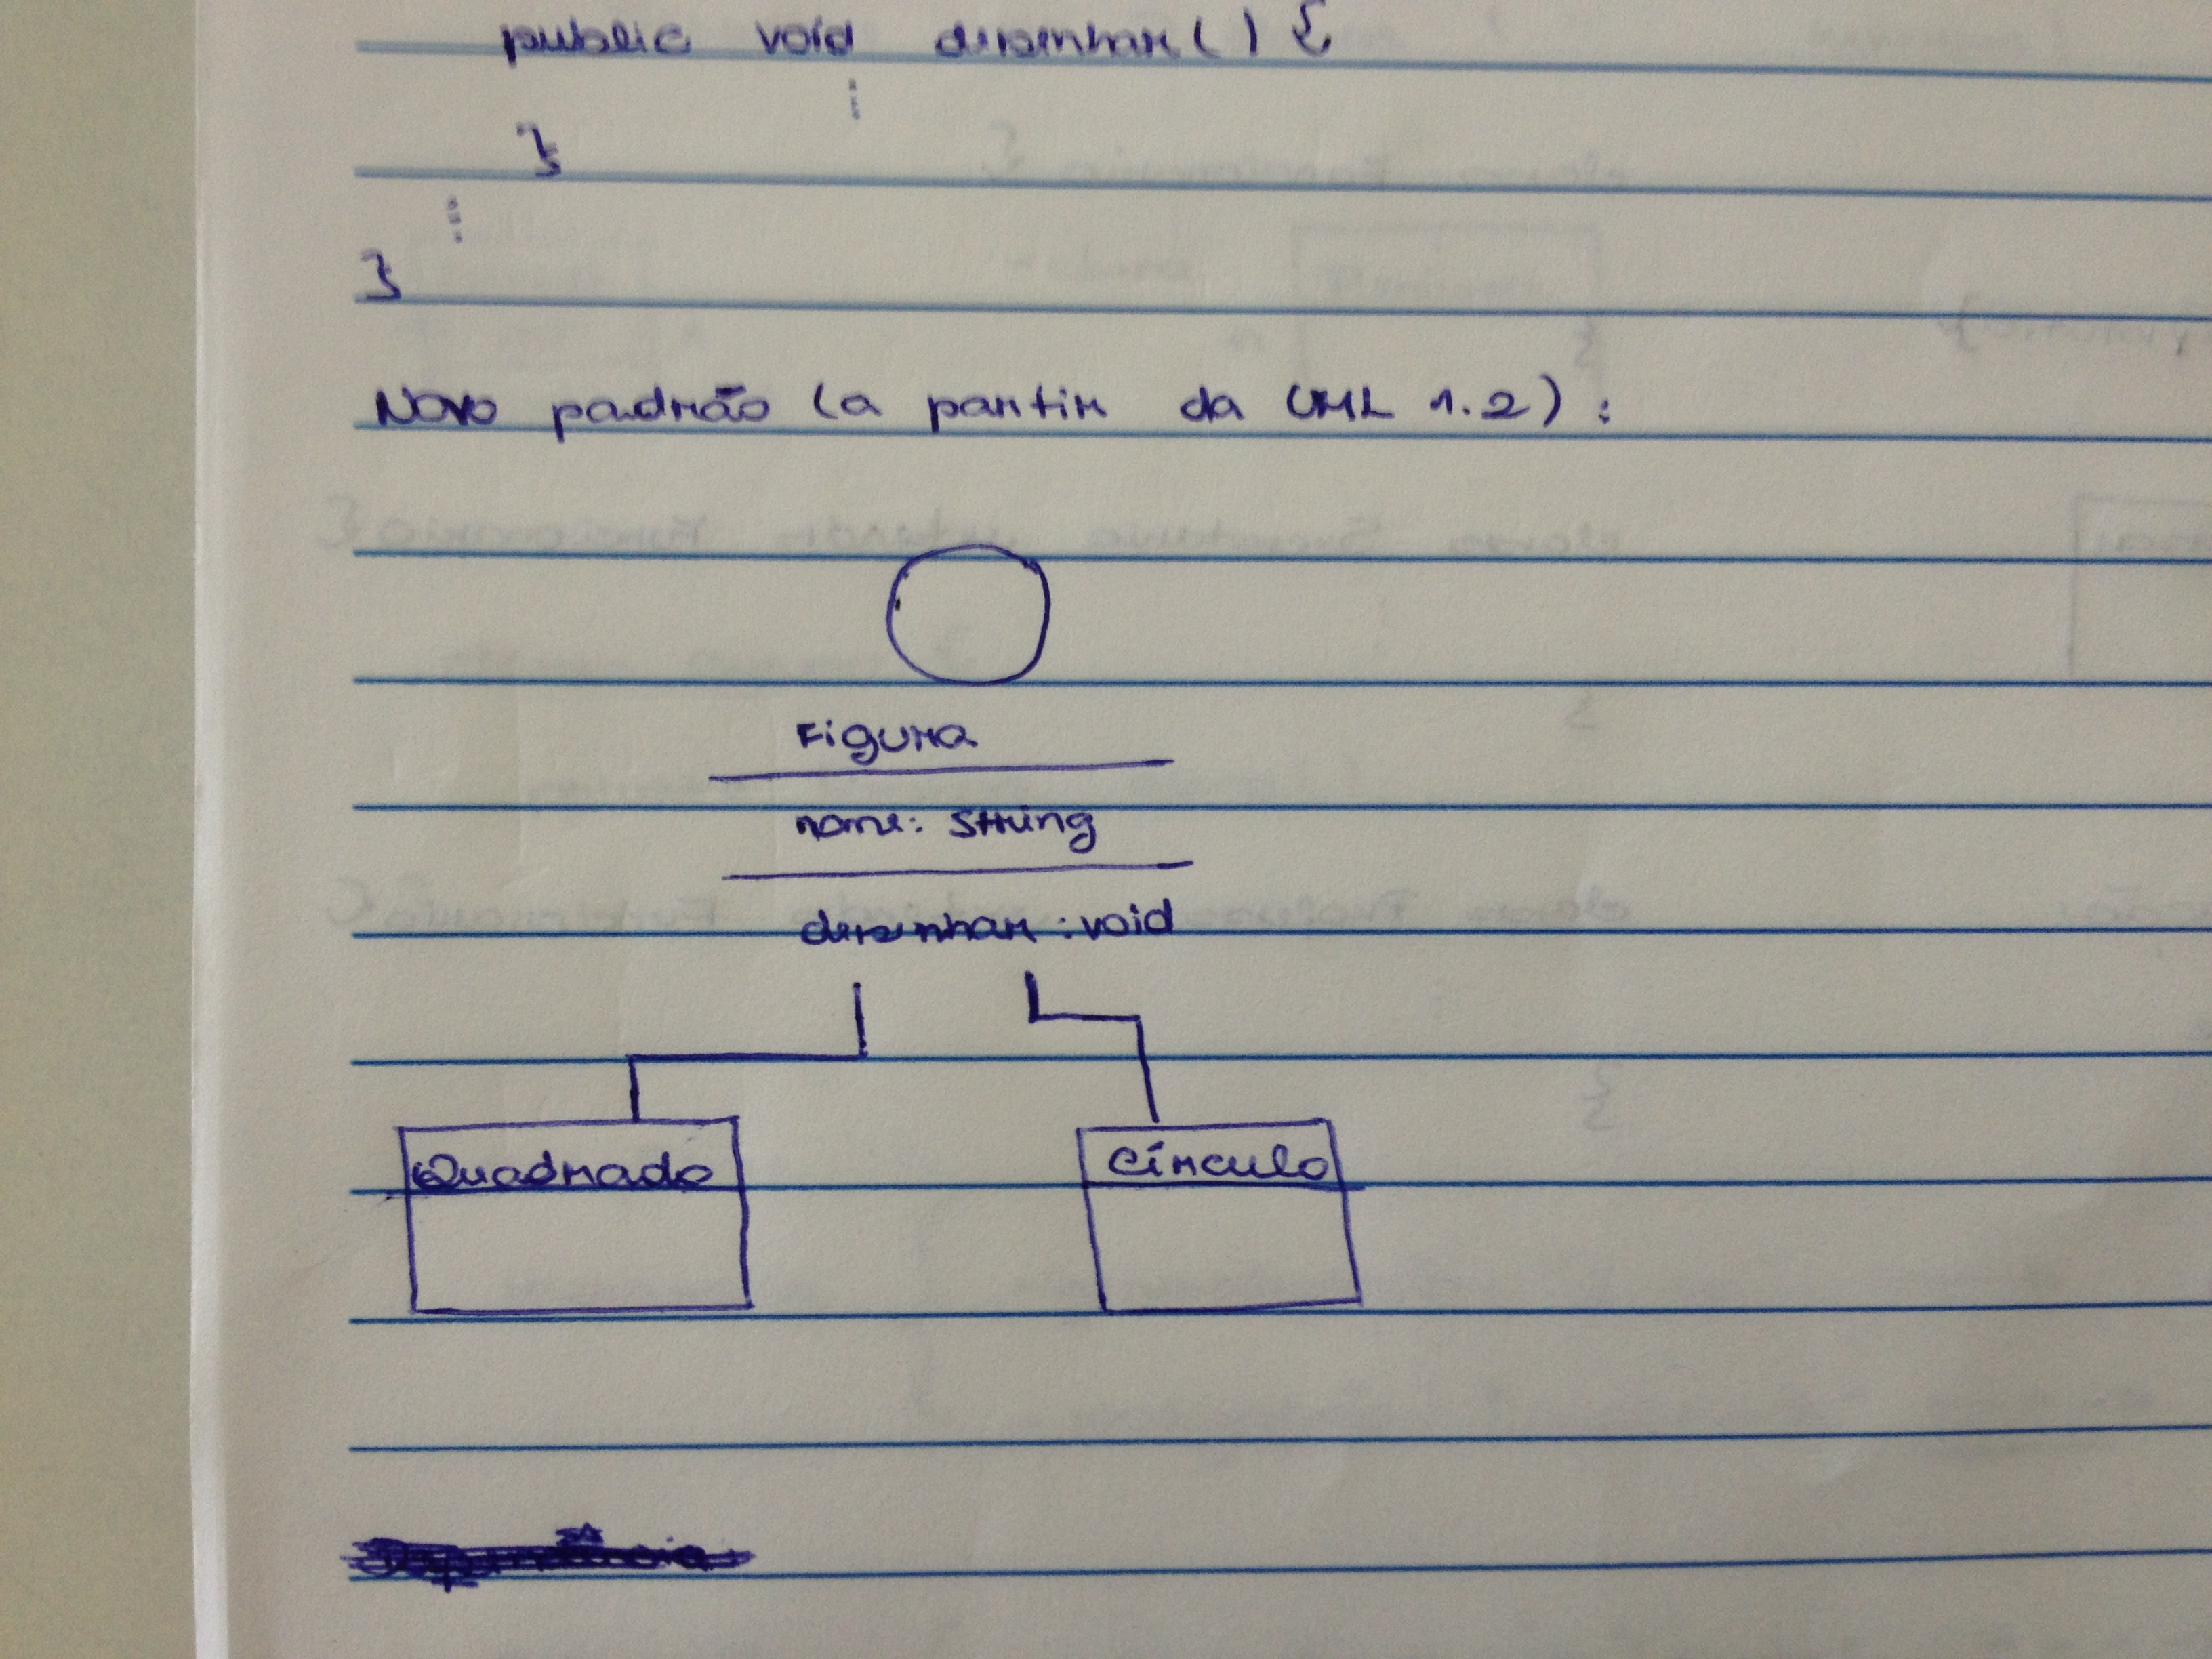 public void desenhar() {
⋮
}
⋮
}
Novo padrão (a partir da UML 1.2):
Figura
nome: String
desenhar: void
Quadrado
Círculo